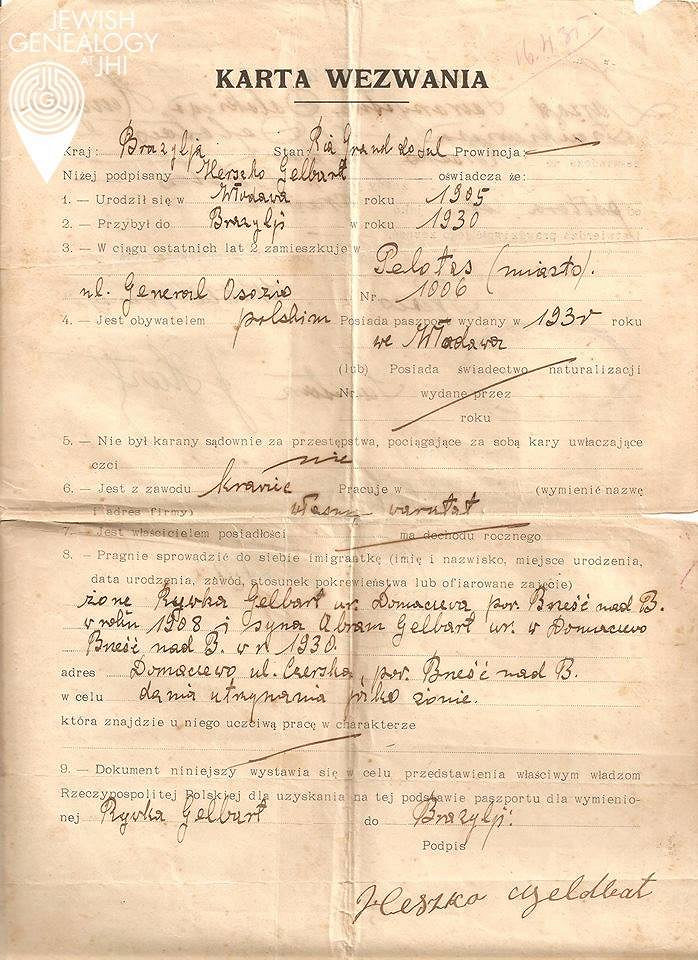 JEWISH
GENEALOGY
AT JHI
16.4.35
KARTA WEZWANIA
Kraj: Brazylja Stan: Rio Grand do Sul Prowincja:
Niżej podpisany Herszko Gelbart oświadcza że:
1. — Urodził się w Włodawa roku 1905
2. — Przybył do Brazylji w roku 1930
3. — W ciągu ostatnich lat 2 zamieszkuje w Pelotas (miasto).
ul. General Osozio Nr. 1006
4. — Jest obywatelem polskim Posiada paszport wydany w 1930 roku
we Włodawa
(lub) Posiada świadectwo naturalizacji
Nr. wydane przez
roku
5. — Nie był karany sądownie za przestępstwa, pociągające za sobą kary uwłaczające
czci nie
6. — Jest z zawodu krawiec Pracuje w (wymienić nazwę
i adres firmy) własny warsztat.
7. — Jest właścicielem posiadłości ma dochodu rocznego
8. — Pragnie sprowadzić do siebie imigrantkę (imię i nazwisko, miejsce urodzenia,
data urodzenia, zawód, stosunek pokrewieństwa lub ofiarowane zajęcie)
żonę Rywka Gelbart ur. Domaczewa, pow. Brześć nad B.
w roku 1908 i syna Abram Gelbart ur. w Domaczewo
Brześć nad B. w r. 1930.
adres Domaczewo, ul. Czerska, pow. Brześć nad B.
w celu dania utrzymania jako żonie.
która znajdzie u niego uczciwą pracę w charakterze
9. — Dokument niniejszy wystawia się w celu przedstawienia właściwym władzom
Rzeczypospolitej Polskiej dla uzyskania na tej podstawie paszportu dla wymienio-
nej Rywka Gelbart do Brazylji.
Podpis
Heszko Geldbat